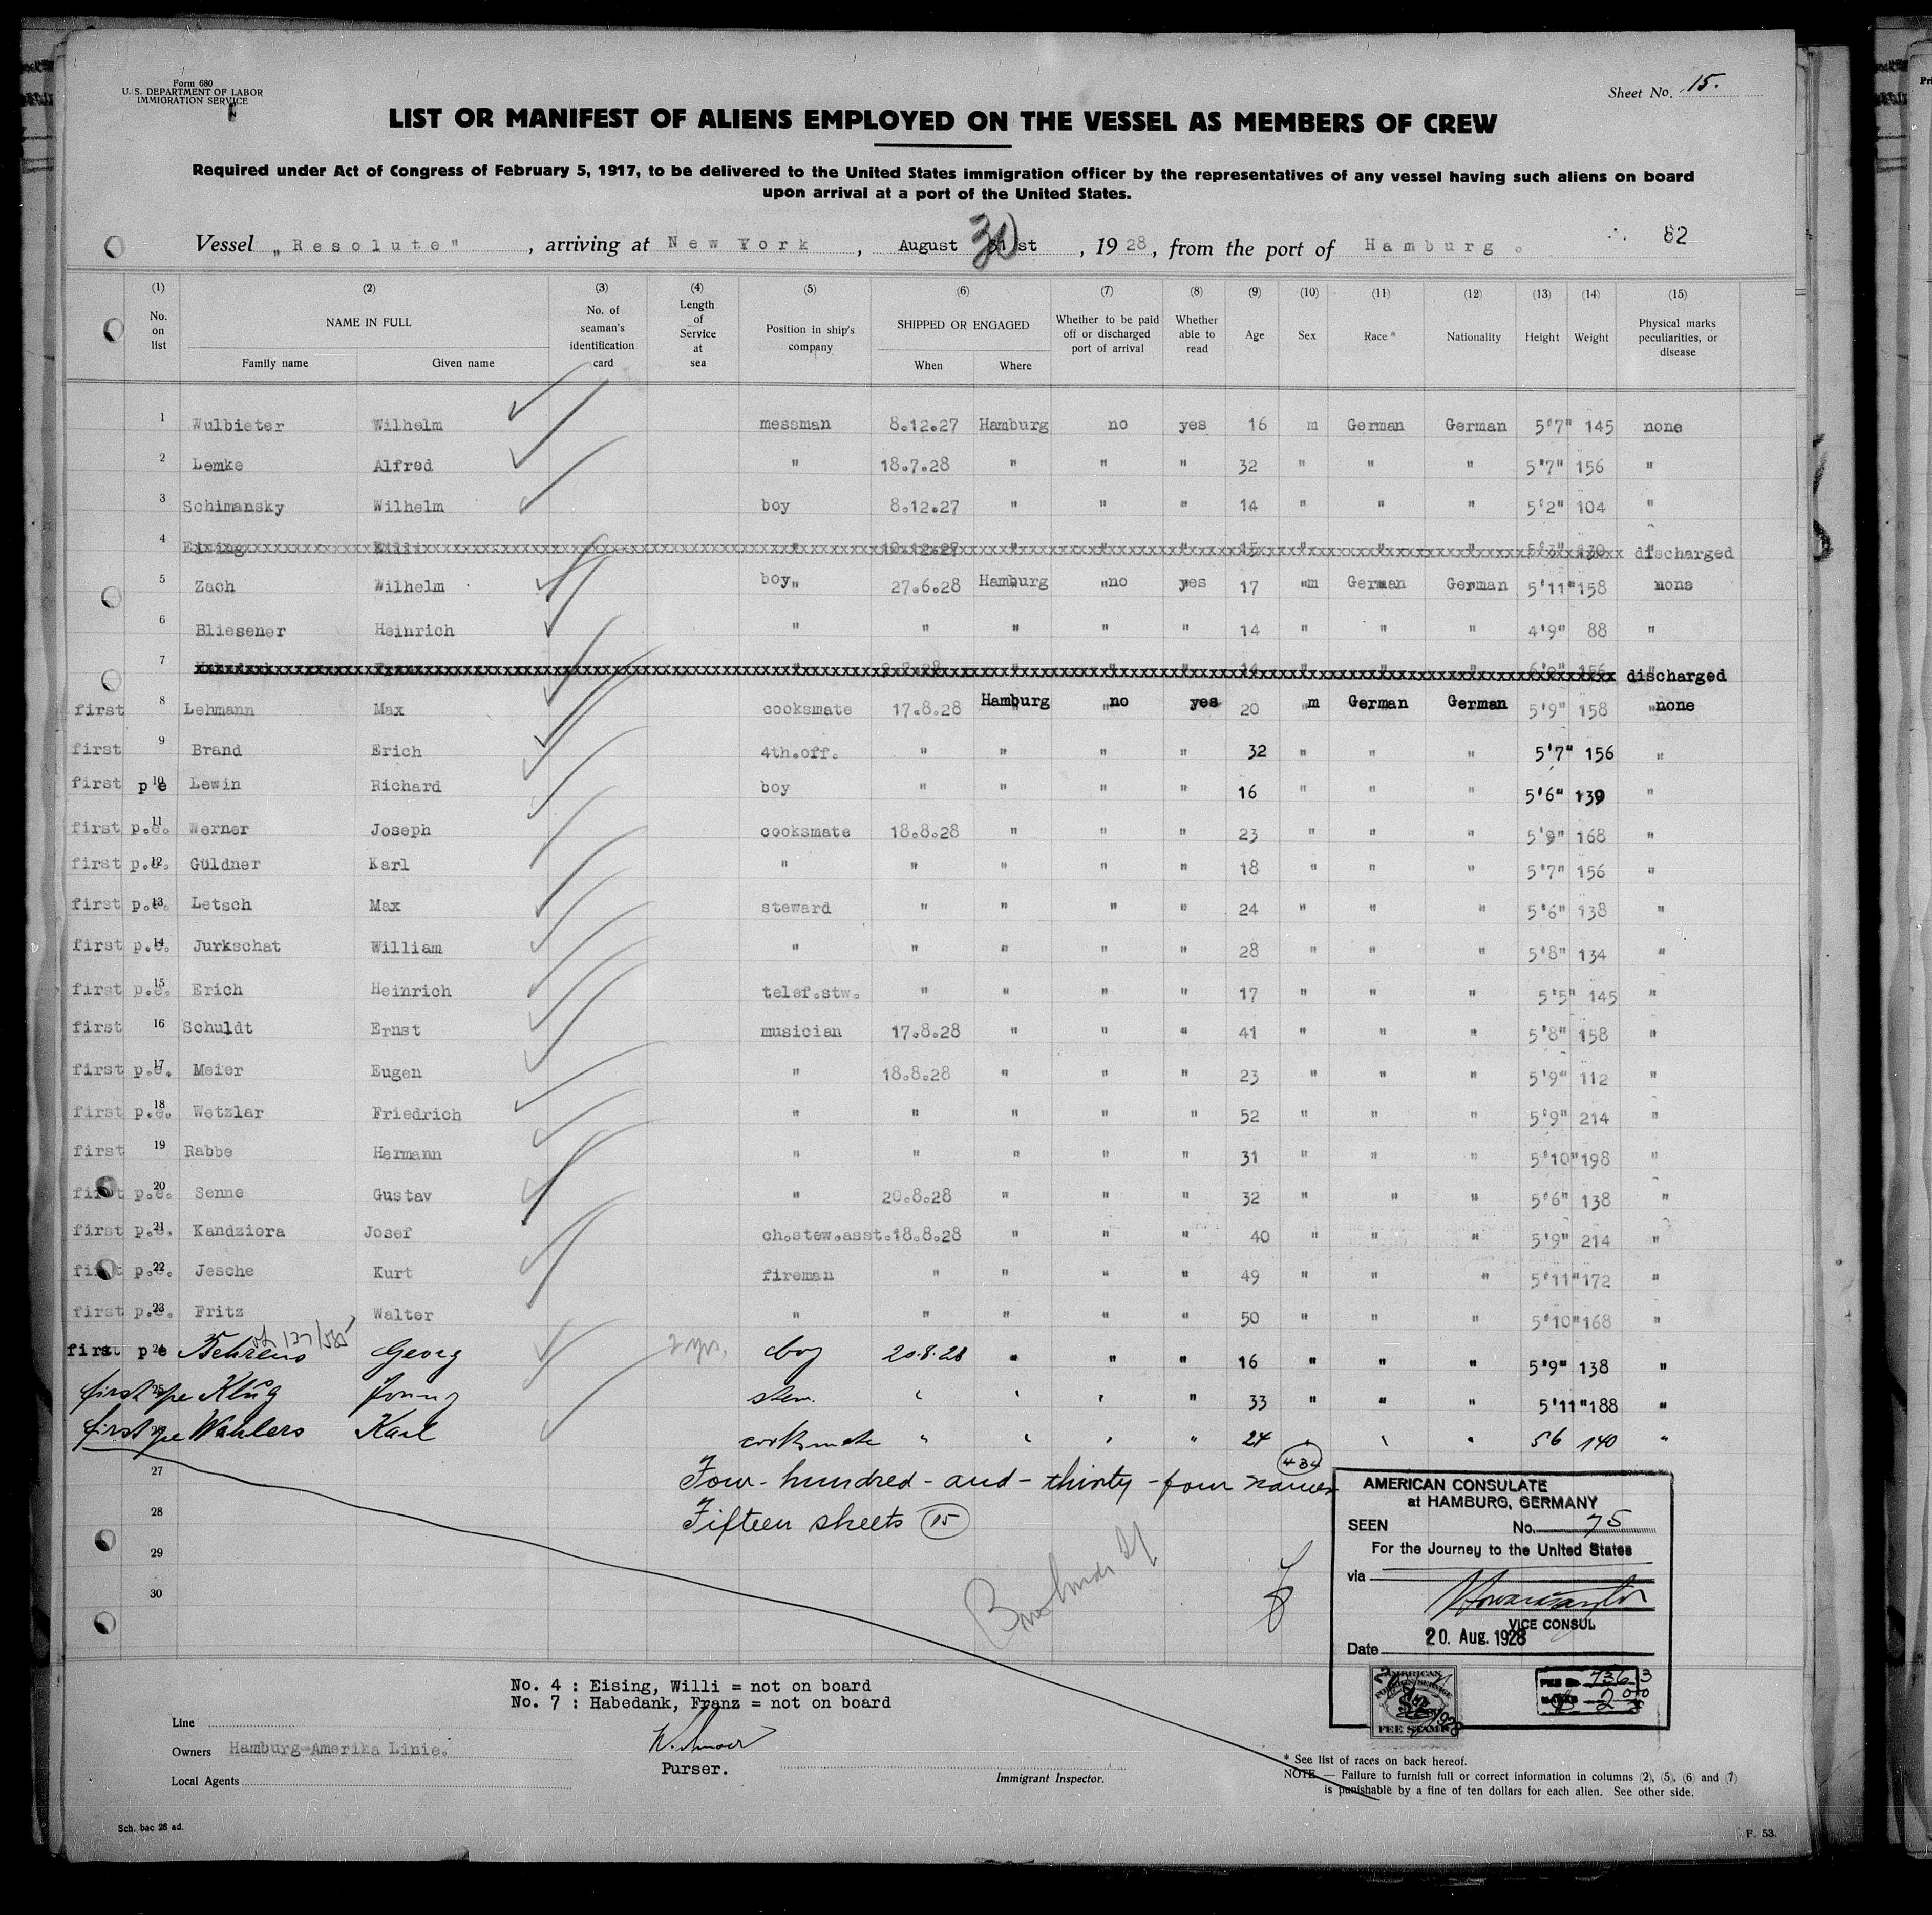 Form 680
U. S. DEPARTMENT OF LABOR
IMMIGRATION SERVICE
Sheet No. 15.
LIST OR MANIFEST OF ALIENS EMPLOYED ON THE VESSEL AS MEMBERS OF CREW
Required under Act of Congress of February 5, 1917, to be delivered to the United States immigration officer by the representatives of any vessel having such aliens on board
upon arrival at a port of the United States.
Vessel „Resolute", arriving at New York, August 31st 30, 1928, from the port of Hamburg. 82
(1) (2) (3) (4) (5) (6) (7) (8) (9) (10) (11) (12) (13) (14) (15)
No. on list NAME IN FULL Family name Given name No. of seaman's identification card Length of Service at sea Position in ship's company SHIPPED OR ENGAGED When Where Whether to be paid off or discharged port of arrival Whether able to read Age Sex Race* Nationality Height Weight Physical marks peculiarities, or disease
1 Wulbieter Wilhelm messman 8.12.27 Hamburg no yes 16 m German German 5'7" 145 none
2 Lemke Alfred " 18.7.28 " " " 32 " " " 5'7" 156 "
3 Schimansky Wilhelm boy 8.12.27 " " " 14 " " " 5'2" 104 "
4 Eising Willi " 10.12.27 " " " 15 " " " 5'3" 130 " discharged
5 Zach Wilhelm boy" 27.6.28 Hamburg "no yes 17 "m German German 5'11" 158 none
6 Bliesener Heinrich " " " " " 14 " " " 4'9" 88 "
7 " " " " 14 " " " 6'0" 156 " discharged
first 8 Lehmann Max cooksmate 17.8.28 Hamburg "no yes 20 "m German German 5'9" 158 "none
first 9 Brand Erich 4th.off. " " " " 32 " " " 5'7" 156 "
first pe 10 Lewin Richard boy " " " " 16 " " " 5'6" 139 "
first p.e. 11 Werner Joseph cooksmate 18.8.28 " " " 23 " " " 5'9" 168 "
first p.e. 12 Güldner Karl " " " " " 18 " " " 5'7" 156 "
first p.e. 13 Letsch Max steward " " " " 24 " " " 5'6" 138 "
first p.e. 14 Jurkschat William " " " " " 28 " " " 5'8" 134 "
first p.e. 15 Erich Heinrich telef.stw. " " " " 17 " " " 5'5" 145 "
first 16 Schuldt Ernst musician 17.8.28 " " " 41 " " " 5'8" 158 "
first p.e. 17 Meier Eugen " 18.8.28 " " " 23 " " " 5'9" 112 "
first p.e. 18 Wetzlar Friedrich " " " " " 52 " " " 5'9" 214 "
first 19 Rabbe Hermann " " " " " 31 " " " 5'10" 198 "
first p.e. 20 Senne Gustav " 20.8.28 " " " 32 " " " 5'6" 138 "
first p.e. 21 Kandziora Josef ch.stew.asst. 18.8.28 " " " 40 " " " 5'9" 214 "
first p.e. 22 Jesche Kurt fireman " " " " 49 " " " 5'11" 172 "
first p.e. 23 Fritz Walter " " " " " 50 " " " 5'10" 168 "
first pe 24 Behrens Georg 2 yrs. boy 20.8.28 " " " 16 " " " 5'9" 138 "
first pe 25 Klüg stew. " " " " 33 " " " 5'11" 188 "
first pe Wahlers Karl cooksmate " " " " 24 " " " 56 140 "
27 Four-hundred-and-thirty-four names 434
28 Fifteen sheets 15
29
30
AMERICAN CONSULATE
at HAMBURG, GERMANY
SEEN No. 75
For the Journey to the United States
via
VICE CONSUL
Date 20. Aug. 1928
AMERICAN
FOREIGN SERVICE
FEE STAMP
No. 4 : Eising, Willi = not on board
No. 7 : Habedank, Franz = not on board
Line
Owners Hamburg-Amerika Linie.
Local Agents
Purser.
Immigrant Inspector.
* See list of races on back hereof.
NOTE — Failure to furnish full or correct information in columns (2), (5), (6) and (7)
is punishable by a fine of ten dollars for each alien. See other side.
Sch. bac 28 ad.
F. 53.